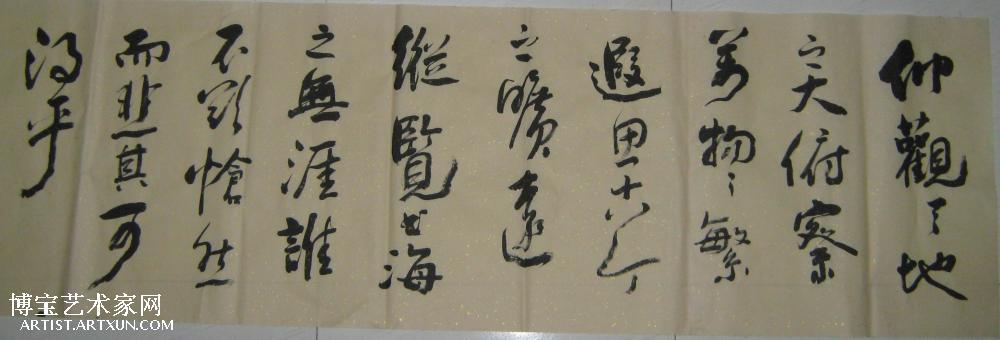 仰觀天地
之大俯察
萬物之繁
遐思古今
之曠遠
縱覽書海
之無涯誰
不歎愴然
而悲其可
得乎
博宝艺术家网
ARTIST.ARTXUN.COM